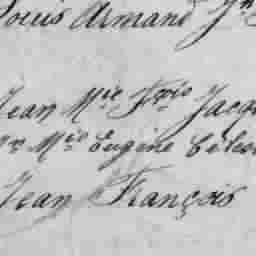 Louis Armand Jn
Jean Mie Frois Jacq
Mie Eugène Céles
Jean François